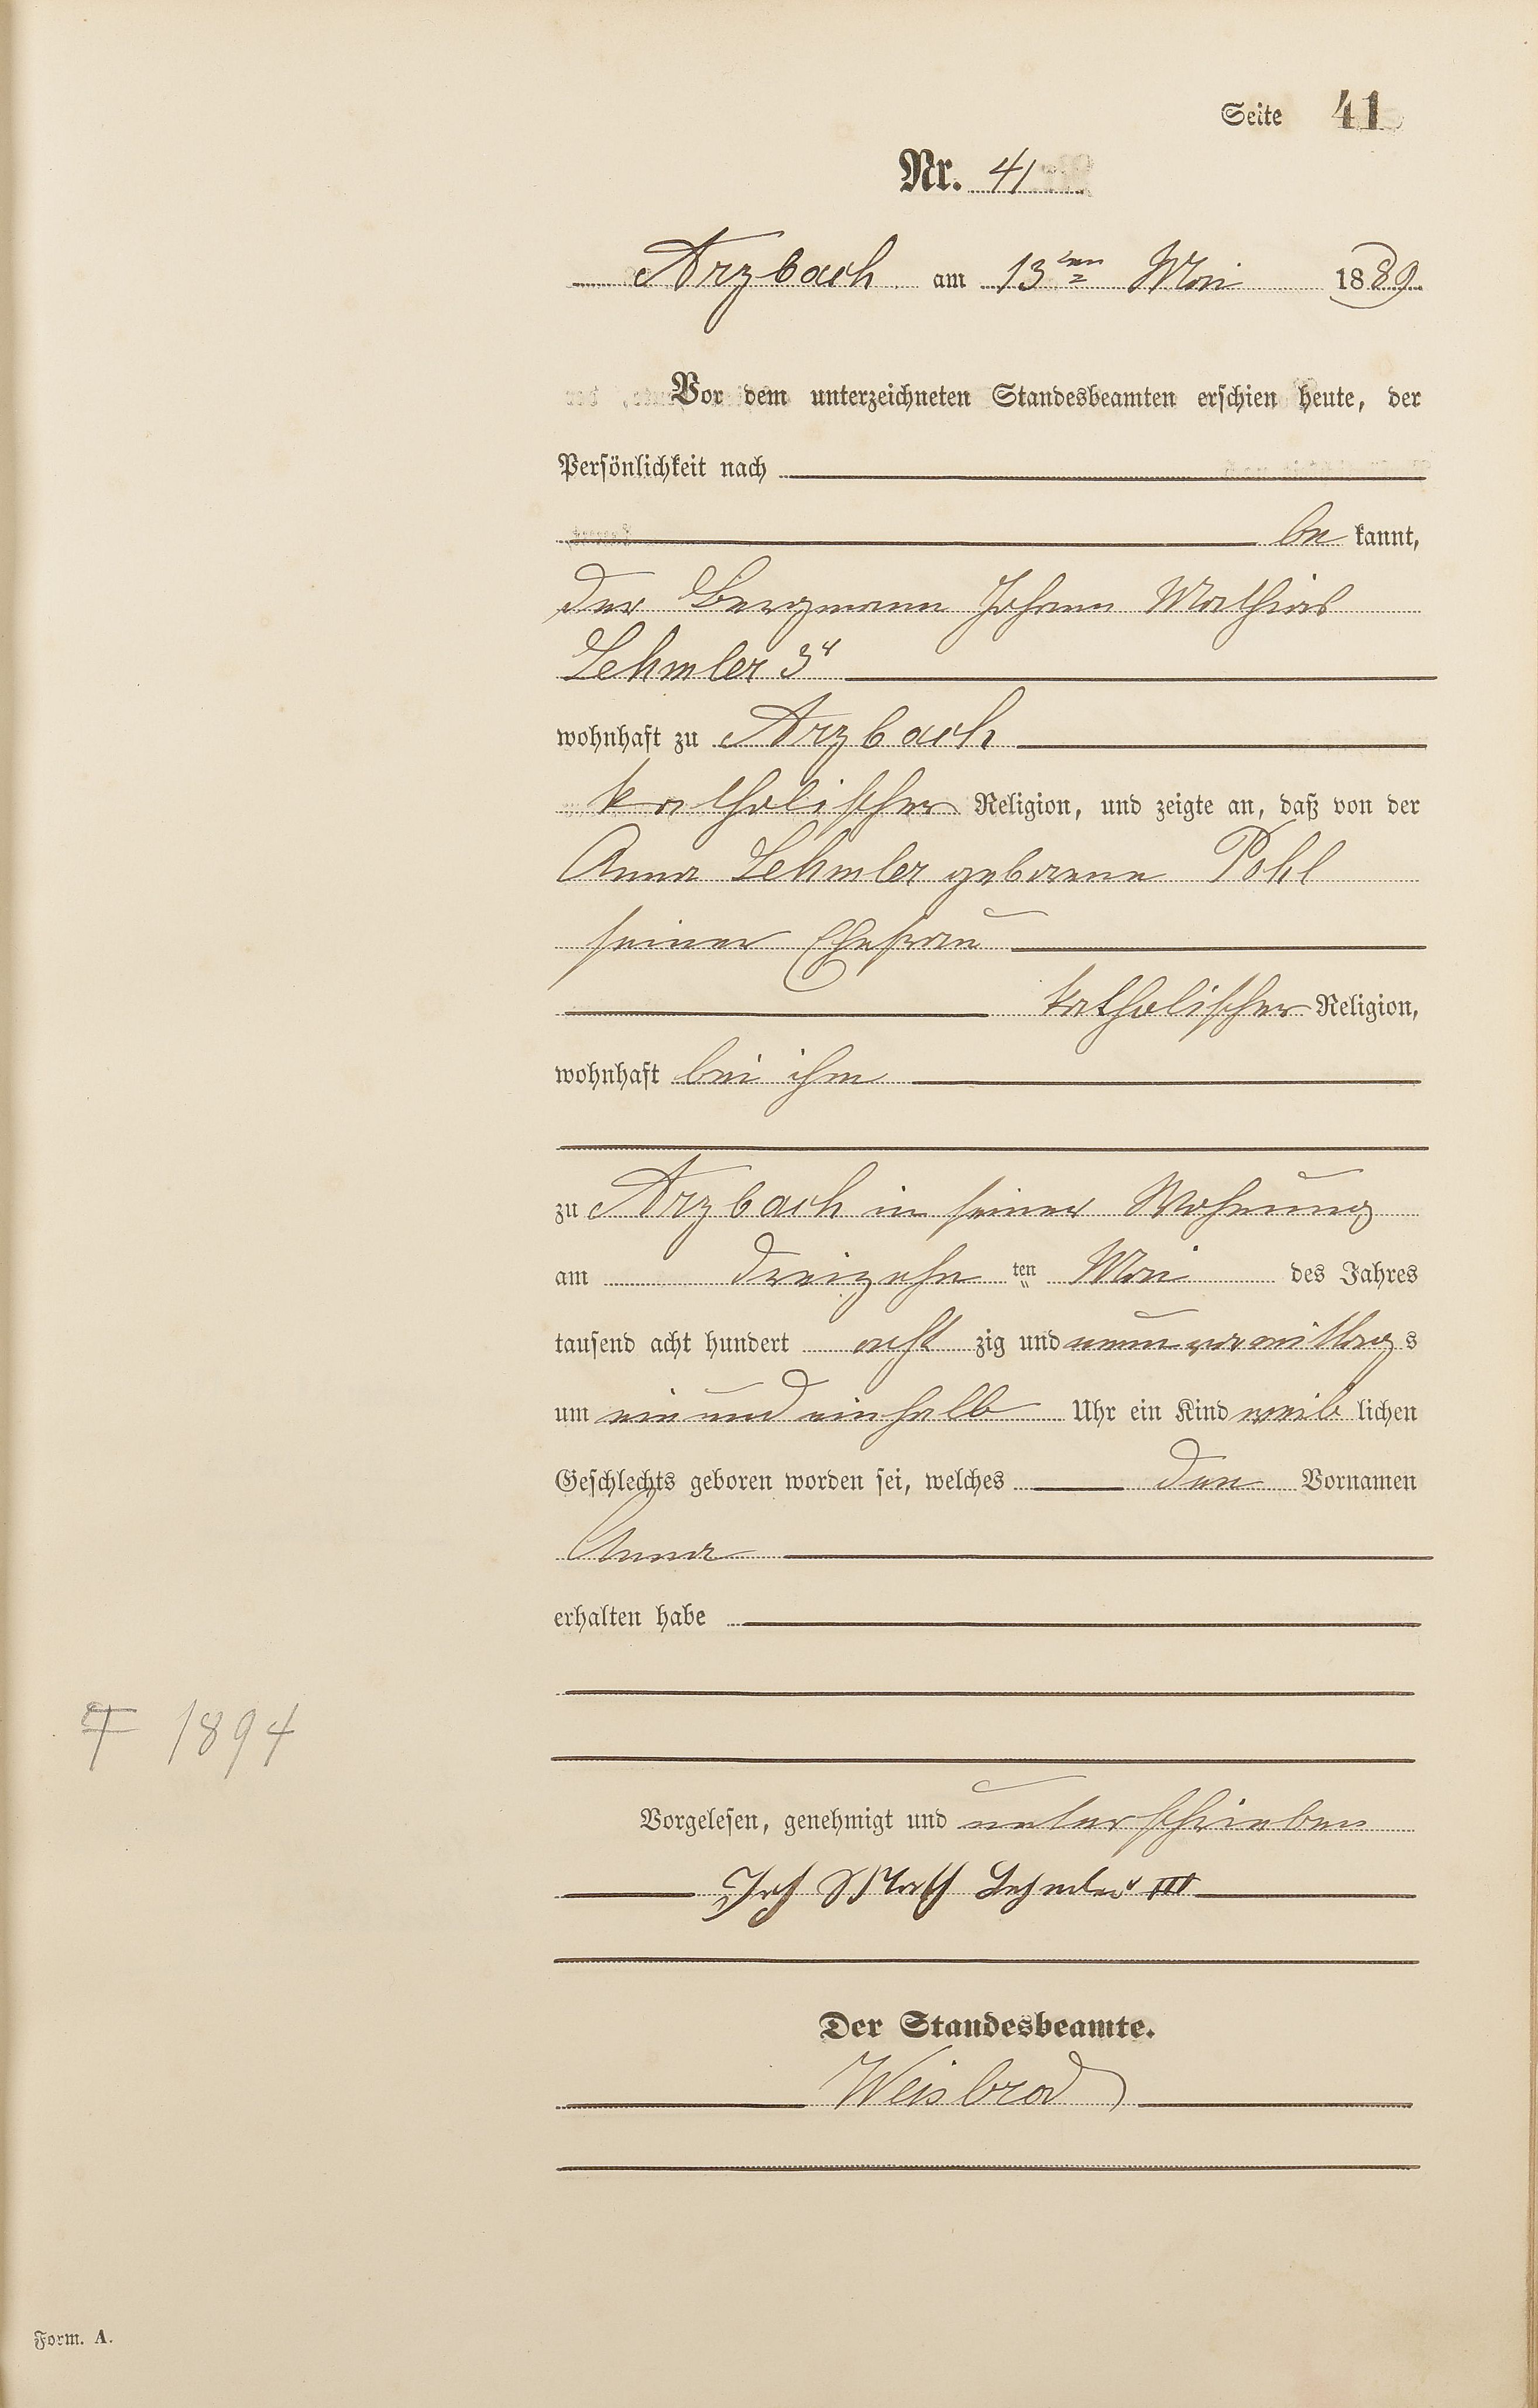 Seite 41
Nr. 41
Arzbach am 13ten Mai 1889
Vor dem unterzeichneten Standesbeamten erschien heute, der
Persönlichkeit nach
be kannt,
der Bergmann Johann Mathias
Lehmler 3r
wohnhaft zu Arzbach
katholischer Religion, und zeigte an, daß von der
Anna Lehmler geborene Pohl
seiner Ehefrau
katholischer Religion,
wohnhaft bei ihm
zu Arzbach in seiner Wohnung
am dreizehn ten Mai des Jahres
tausend acht hundert acht zig und neun vormittags
um ein und einhalb Uhr ein Kind weib lichen
Geschlechts geboren worden sei, welches den Vornamen
Anna
erhalten habe
† 1894
Vorgelesen, genehmigt und unterschrieben
Joh Math Lehmler III
Der Standesbeamte.
Weisbrod
Form. A.